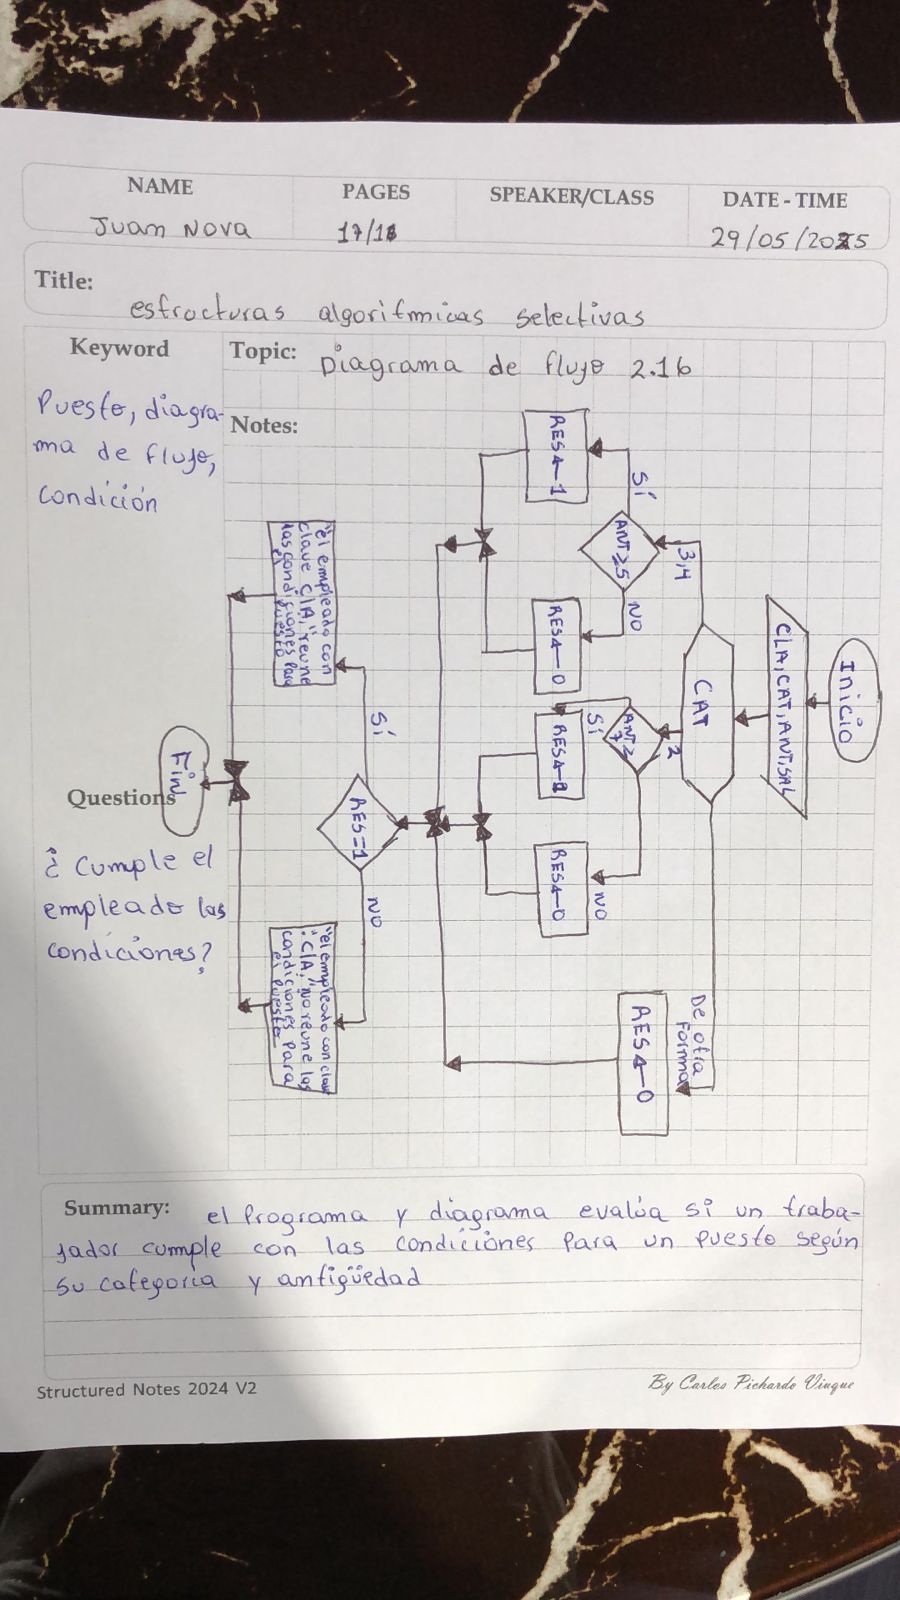 NAME
PAGES
SPEAKER/CLASS
DATE - TIME
Juan Nova
17/18
29/05/2025
Title:
estructuras algoritmicas selectivas
Keyword
Puesto, diagra-
ma de flujo,
condición
Topic: Diagrama de flujo 2.16
Notes:
Inicio
CLA, CAT, ANT, SAL
CAT
3,4
2
De otra
forma
ANT≥5
Sí
NO
RES←1
RES←0
ANT≥
7
Sí
NO
RES←1
RES←0
RES←0
RES=1
Sí
NO
"el empleado con
clave CIA, "reune
las condiciones para
el puesto
"el empleado con clav
" CIA, "no reune las
condiciones para
el puesto
Fin
Questions
¿ Cumple el
empleado las
condiciones?
Summary: el Programa y diagrama evalúa si un traba-
jador cumple con las condiciones para un puesto según
su categoria y antigüedad
Structured Notes 2024 V2
By Carlos Pichardo Viuque